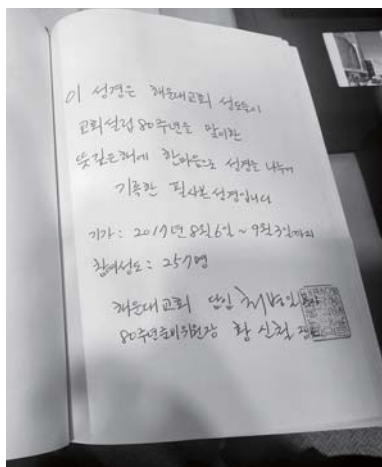 이 성경은 해운대교회 성도들이
교회설립 80주년을 맞이한
뜻깊은해에 한마음으로 성경을 나누어
기록한 필사본성경입니다
기간: 2017년 8월 6일 ~ 9월 3일까지
참여성도: 257명
해운대교회 담임
80주년준비위원장 황 신철